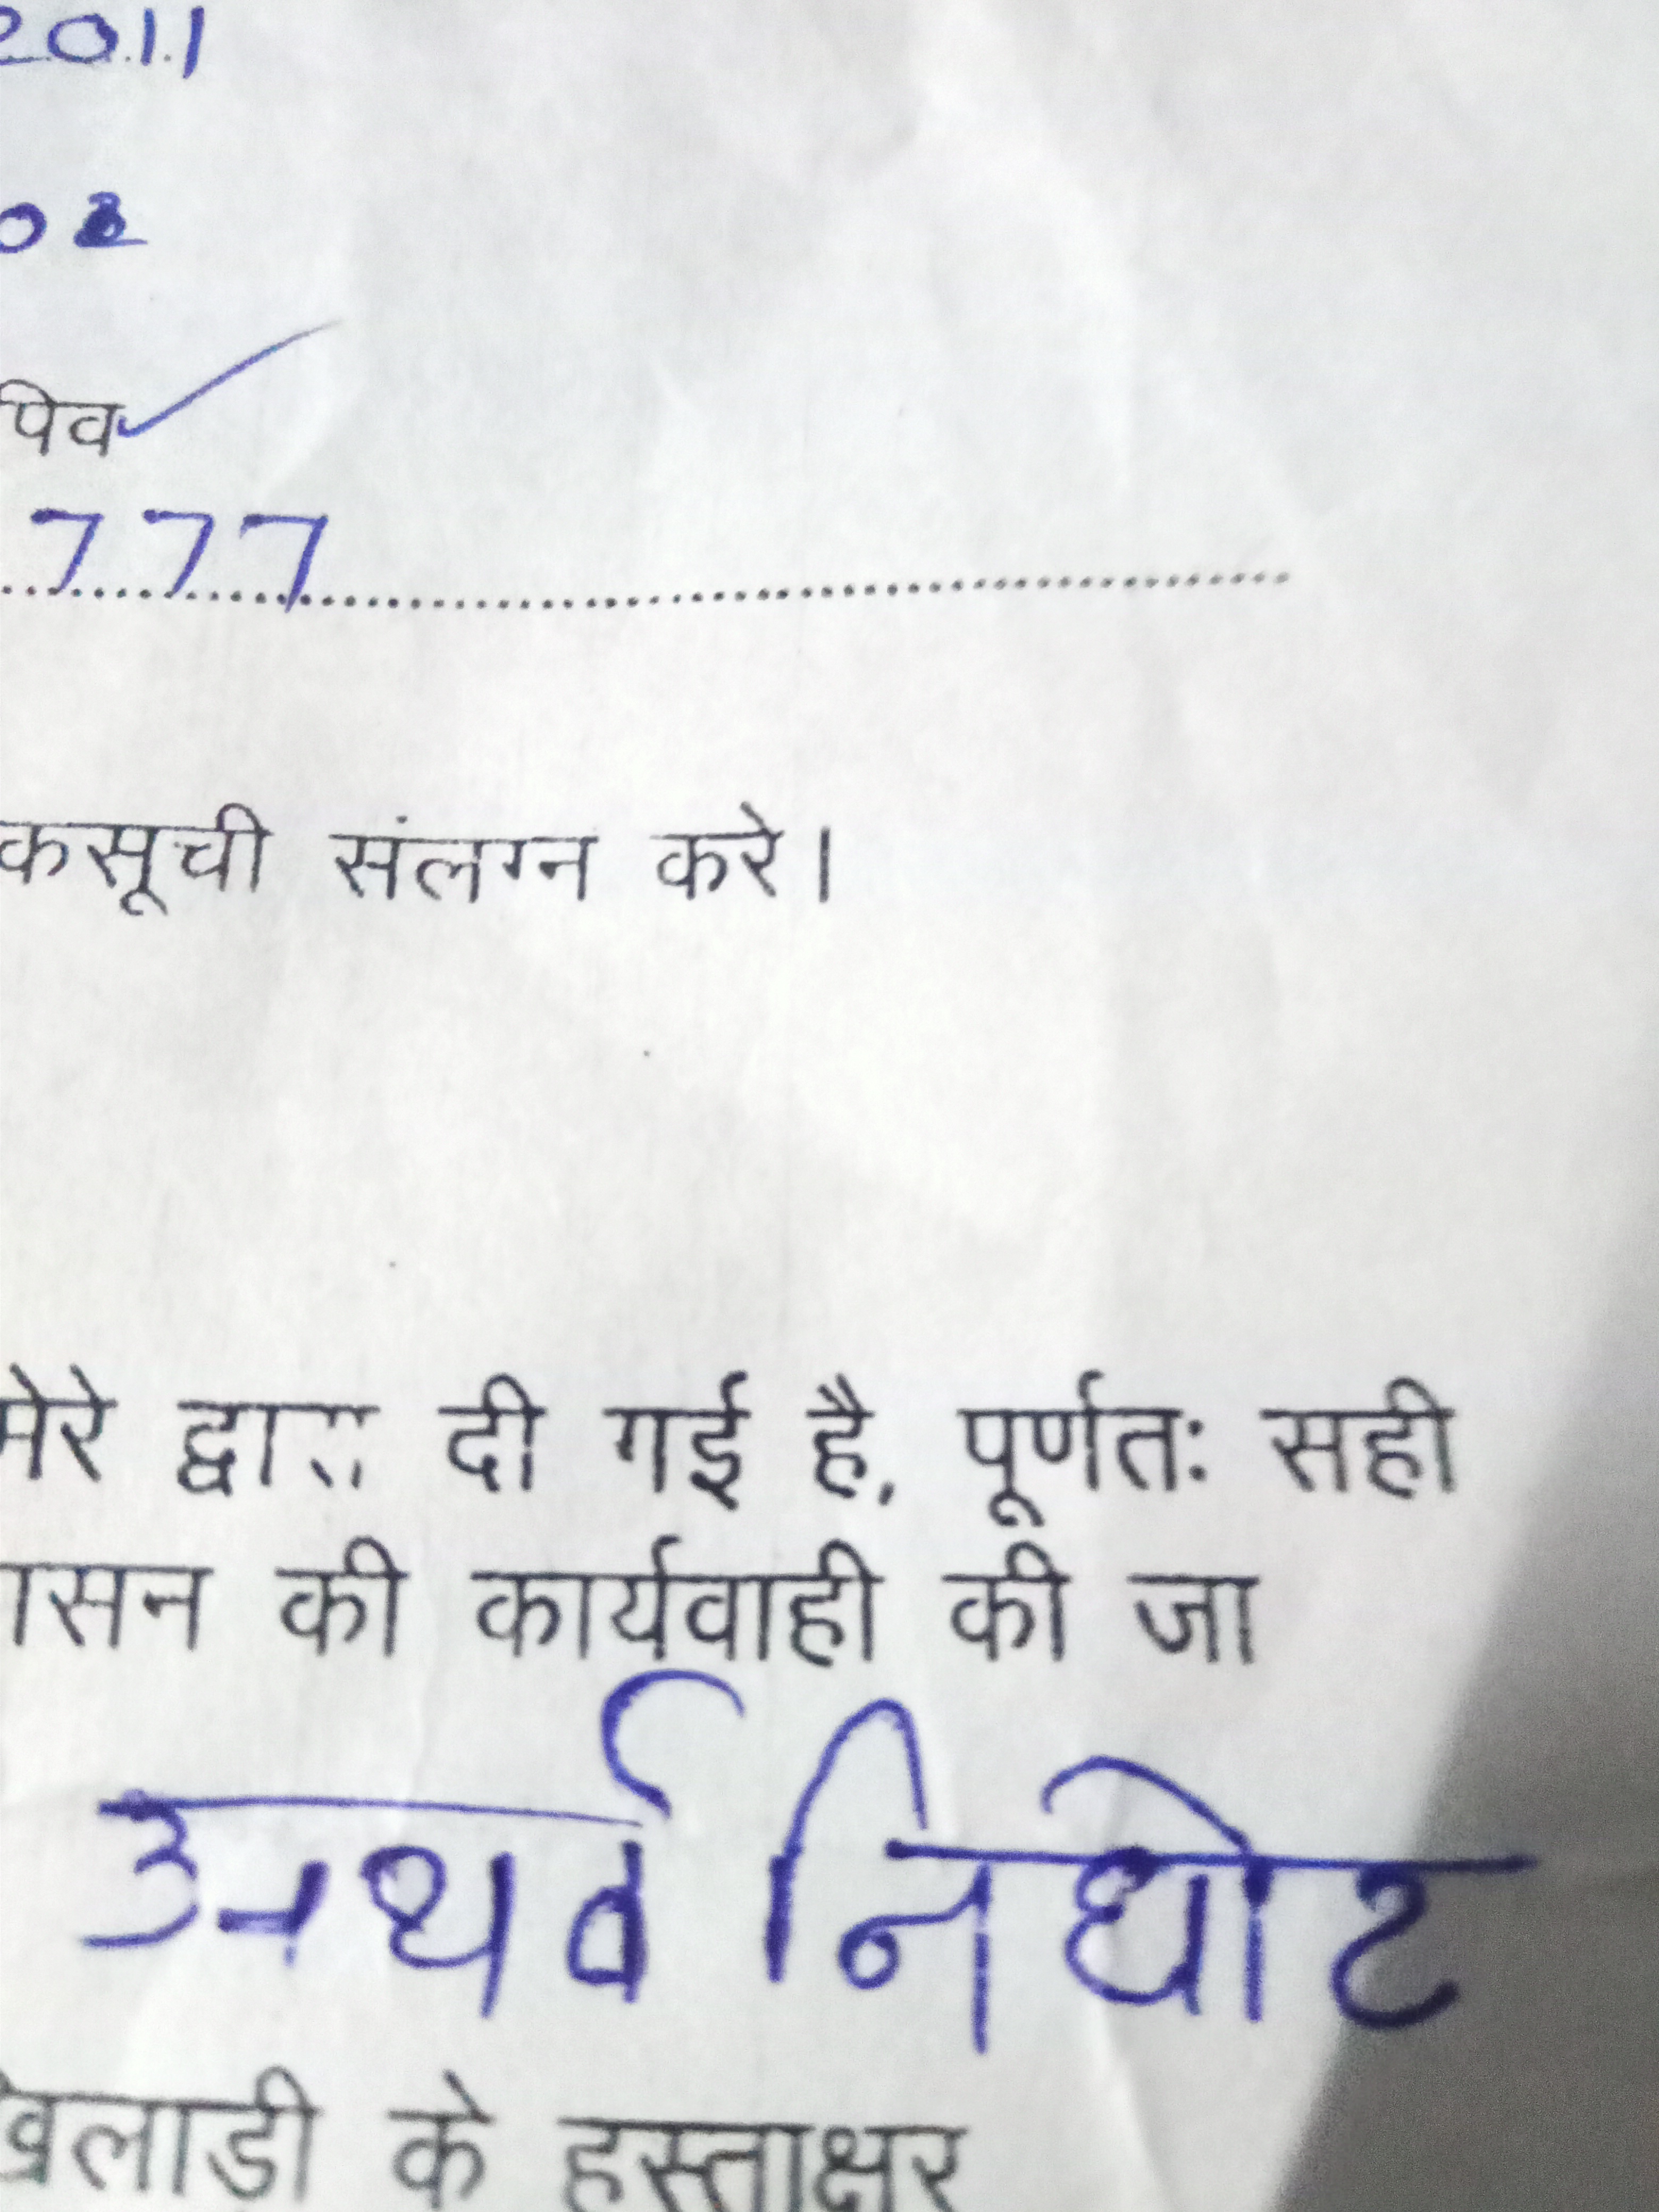 2011
02
पिव
777
कसूची संलग्न करे।
मेरे द्वारा दी गई है, पूर्णतः सही
ासन की कार्यवाही की जा
अथर्व निघोट
खिलाडी के हस्ताक्षर